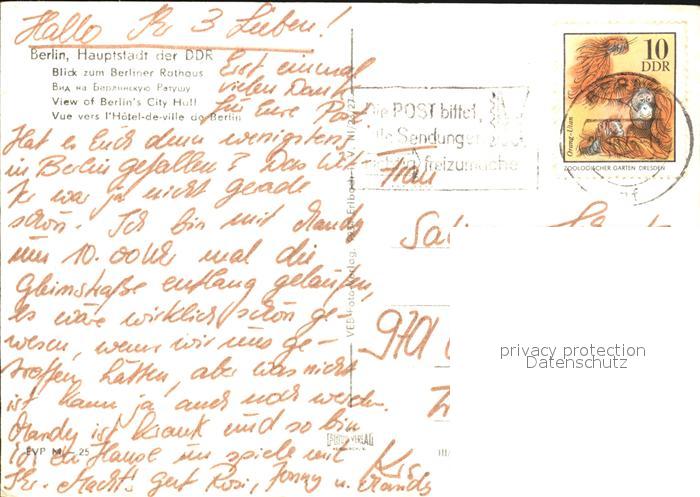 Hallo Ihr 3 Lieben!
Berlin, Hauptstadt der DDR
Blick zum Berliner Rathaus
Вид на Берлинскую Ратушу
View of Berlin's City Hall
Vue vers l'Hôtel-de-ville de Berlin
Erst einmal
vielen Dank
für Eure Post
Hat es Euch denn wenigstens
in Berlin gefallen? Das Wet-
ter war ja nicht gerade
schön. Ich bin mit Mandy
um 10.00 Uhr mal die
Gleimstraße entlang gelaufen,
es wäre wirklich schön ge-
wesen, wenn wir uns ge-
troffen hätten, aber was nicht
ist kann ja auch noch werden.
Mandy ist krank und so bin
ich zu Hause und spiele mit
Ihr. Macht's gut Rosi, Jonny u. Mandy
EVP M -.25
VEB Foto-Verlag
Die POST bittet,
alle Sendungen
freizumachen
10
DDR
Orang-Utan
ZOOLOGISCHER GARTEN DRESDEN
Frau
970
privacy protection
Datenschutz